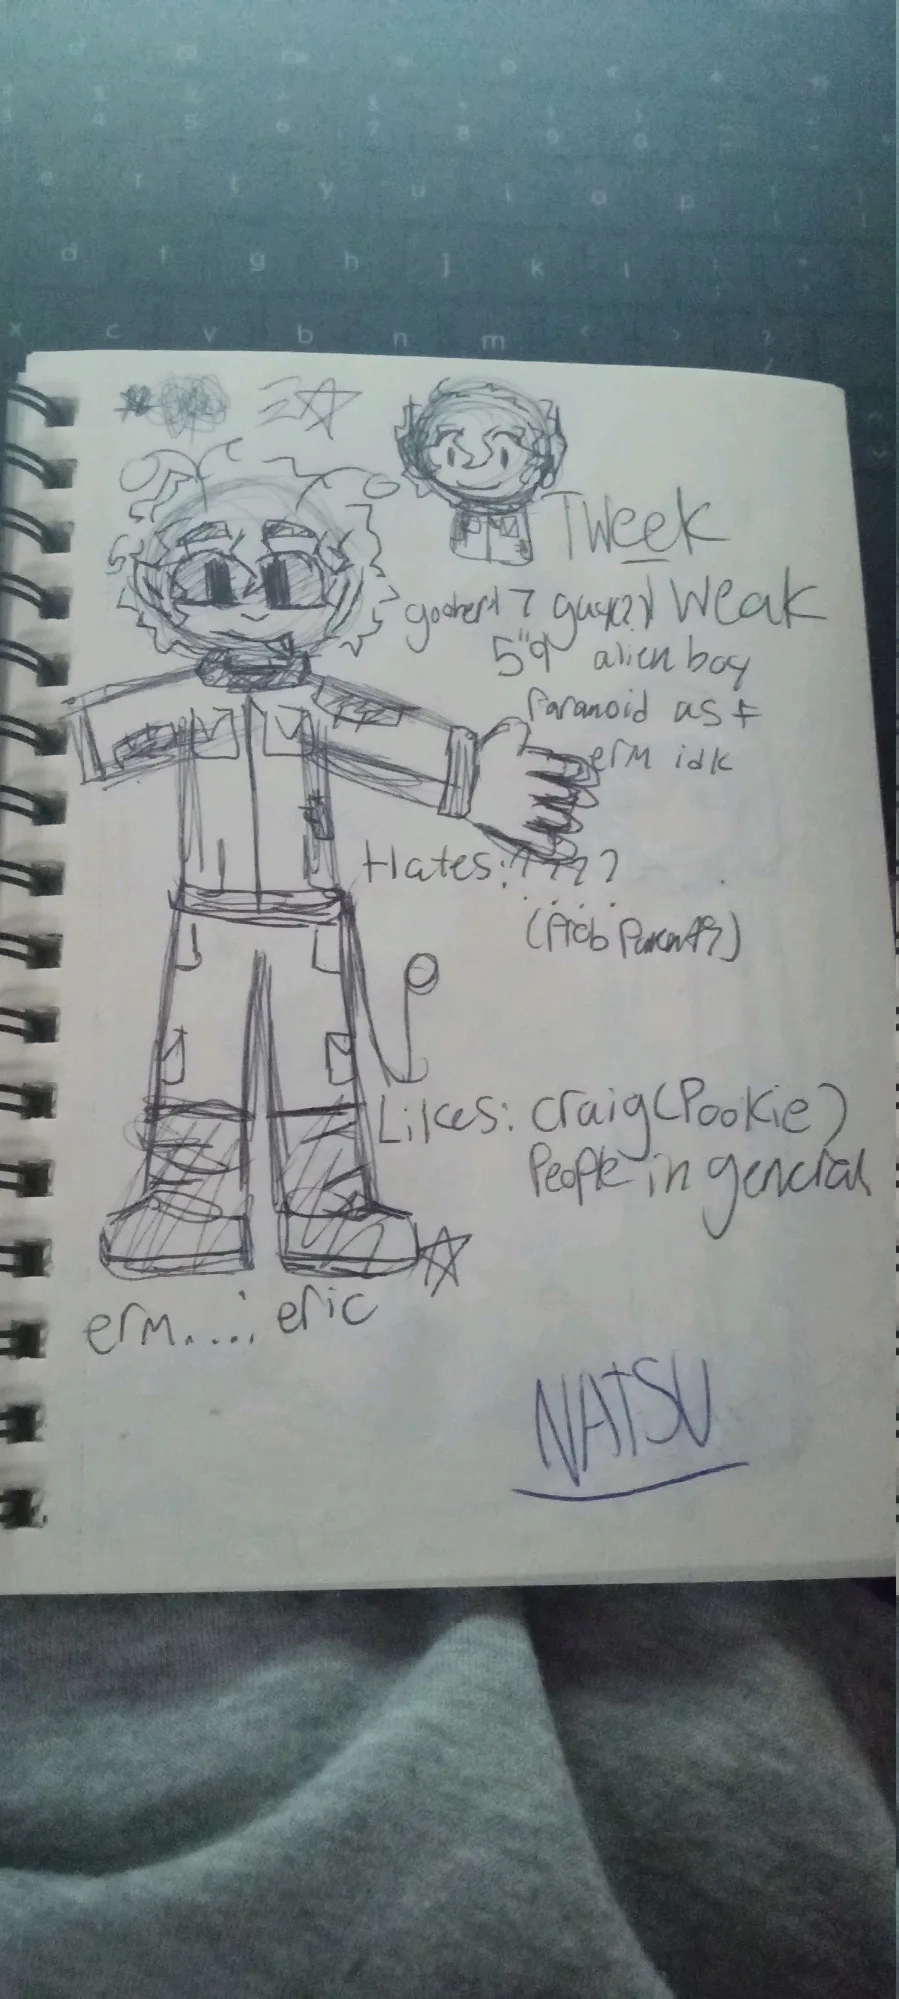 Tweek
Weak
5"9 alien boy
Paranoid as f
erm idk
Hates:????
(Prob Parents?)
Likes: Craig(Pookie)
People in general
erm....: eric
NATSU
e r t y u i o p
d f g h j k l
x c v b n m < > ?